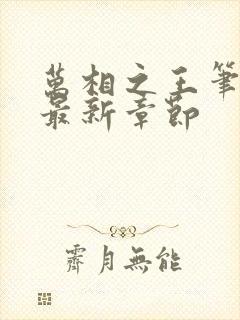 萬相之王筆
最新章節
霽月無能